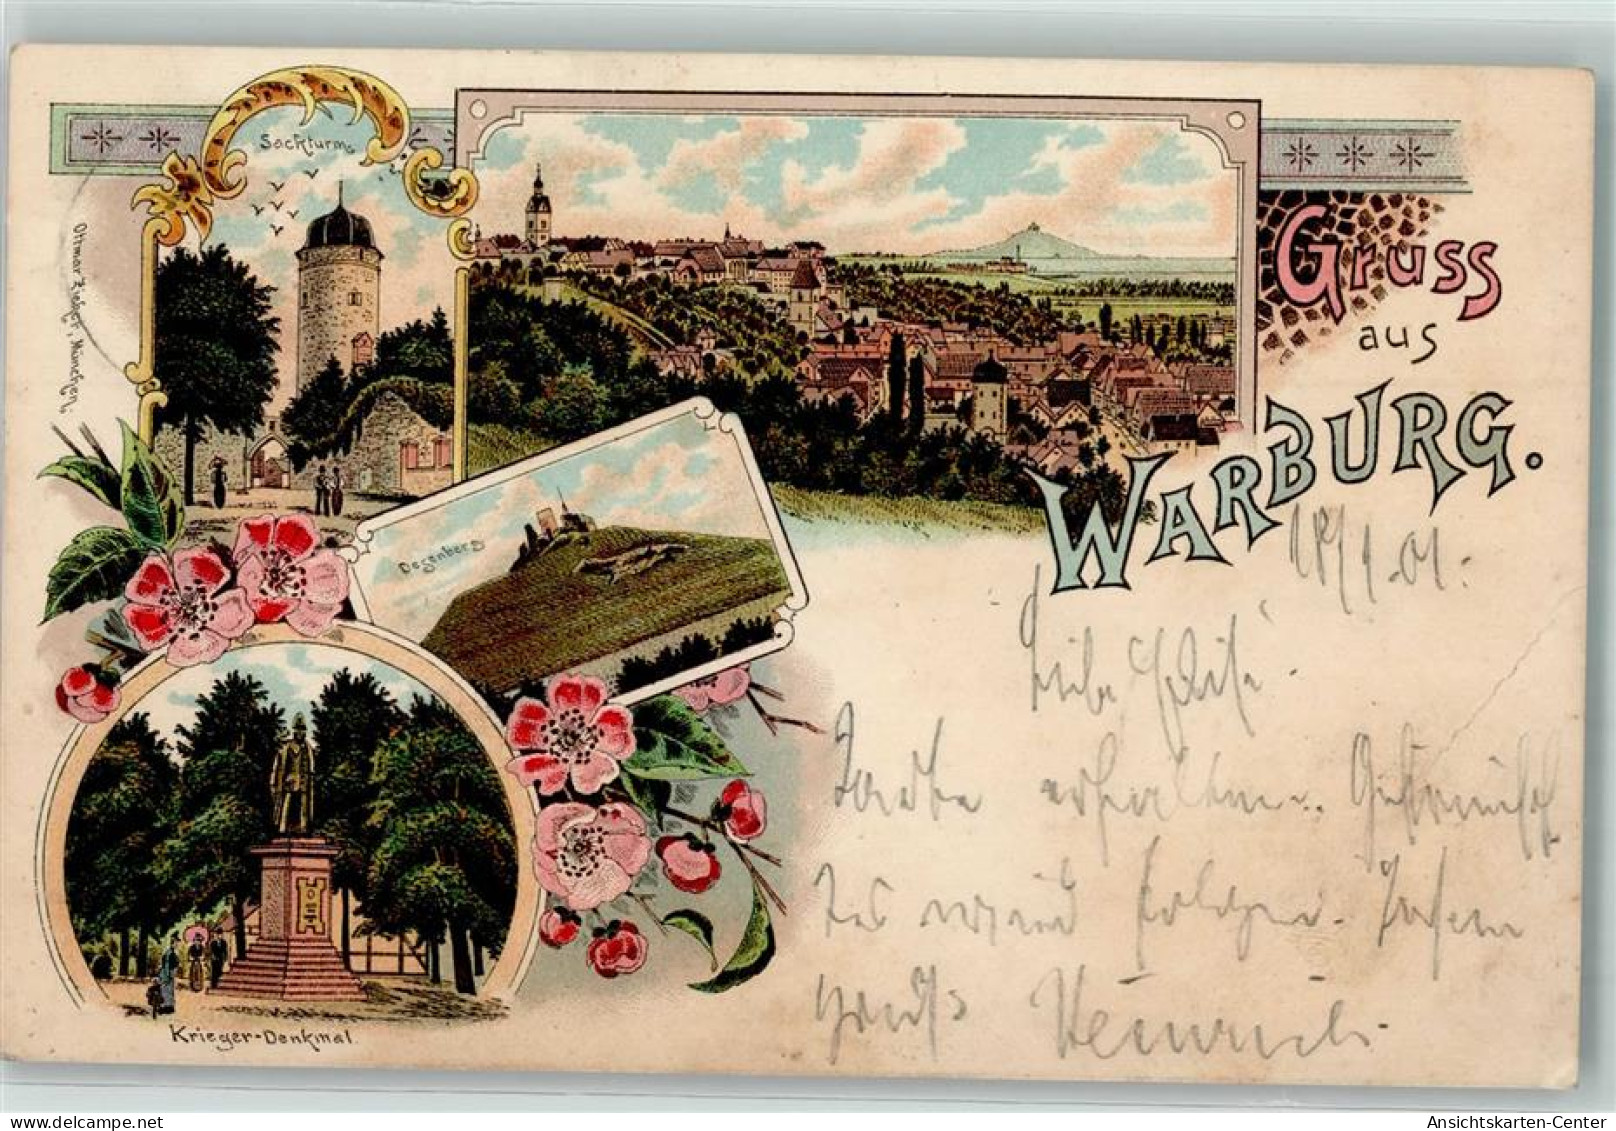 Sackturm
Ottmar Zieher, München.
Gruss
aus
WARBURG.
Desenberg
Krieger-Denkmal
18/1.01.
Karte erhalten.
folgen.
Gruß Heinrich
Ansichtskarten-Center